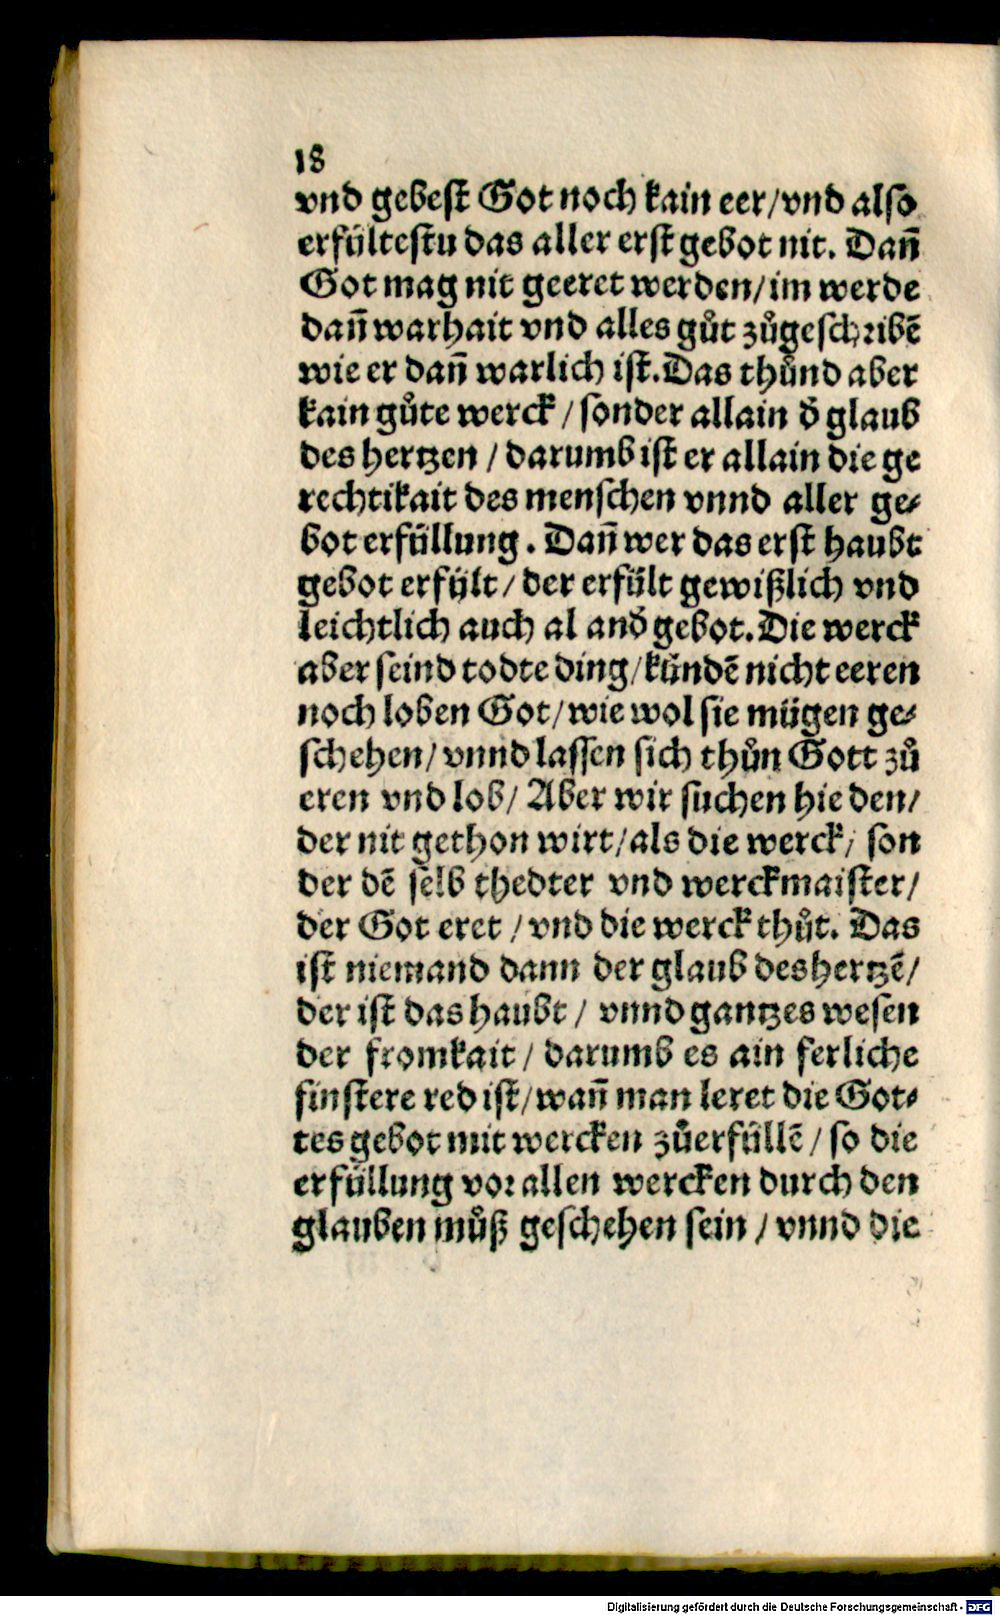 18
vnd gebest Got noch kain eer/vnd also
erfültestu das aller erst gebot nit. Dañ
Got mag nit geeret werden/im werde
dañ warhait vnd alles gůt zůgeschribẽ
wie er dañ warlich ist. Das thůnd aber
kain gůte werck/sonder allain ď glaub
des hertzen/darumb ist er allain die ge
rechtikait des menschen vnnd aller ge⸗
bot erfüllung. Dañ wer das erst haubt
gebot erfült/der erfült gewißlich vnd
leichtlich auch al anď gebot. Die werck
aber seind todte ding/kündẽ nicht eeren
noch loben Got/wie wol sie mügen ge⸗
schehen/vnnd lassen sich thůn Gott zů
eren vnd lob/Aber wir suchen hie den/
der nit gethon wirt/als die werck/son
der dẽ selb thedter vnd werckmaister/
der Got eret/vnd die werck thůt. Das
ist niemand dann der glaub des hertzẽ/
der ist das haubt/vnnd gantzes wesen
der fromkait/darumb es ain ferliche
finstere red ist/wañ man leret die Got⸗
tes gebot mit wercken zůerfüllẽ/so die
erfüllung vor allen wercken durch den
glauben můß geschehen sein/vnnd die
Digitalisierung gefördert durch die Deutsche Forschungsgemeinschaft - DFG